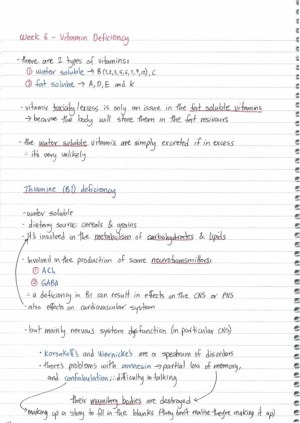 Week 6 - Vitamin Deficiency
- there are 2 types of vitamins:
① water soluble → B (1,2,3,5,6,7,9,12), C
② fat soluble → A, D, E and K
- vitamin toxicity/excess is only an issue in the fat soluble vitamins
→ because the body will store them in the fat resivours
- the water soluble vitamins are simply excreted if in excess
∴ it's very unlikely
Thiamine (B1) deficiency
- water soluble
- dietary source: cereals & grains
- it's involved in the metabolism of carbohydrates & lipids
- Involved in the production of some neurotransmitters:
① ACh
② GABA
∴ a deficiency in B1 can result in effects on the CNS or PNS
- also effects on cardiovascular system
- but mainly nervous system dysfunction (in particular CNS)
• Korsakoff's and Wernicke's are a spectrum of disorders
• there's problems with amnesia → partial loss of memory,
and confabulation ∴ difficulty in talking
their mamillary bodies are destroyed
making up a story to fill in the blanks (they don't realise they're making it up)